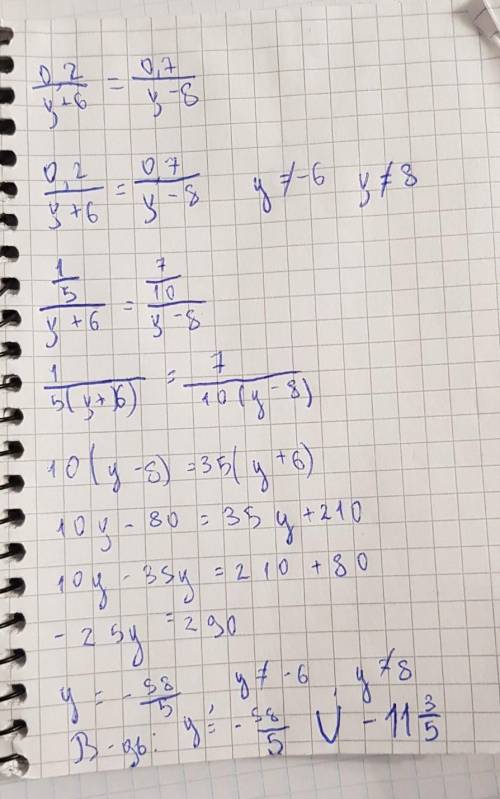 0,2/(y+6) = 0,7/(y-8)
0,2/(y+6) = 0,7/(y-8) y ≠ -6 y ≠ 8
(1/5)/(y+6) = (7/10)/(y-8)
1/(5(y+6)) = 7/(10(y-8))
10(y-8) = 35(y+6)
10y - 80 = 35y + 210
10y - 35y = 210 + 80
-25y = 290
y = -58/5 y ≠ -6 y ≠ 8
В-дь: y = -58/5 ∪ -11 3/5